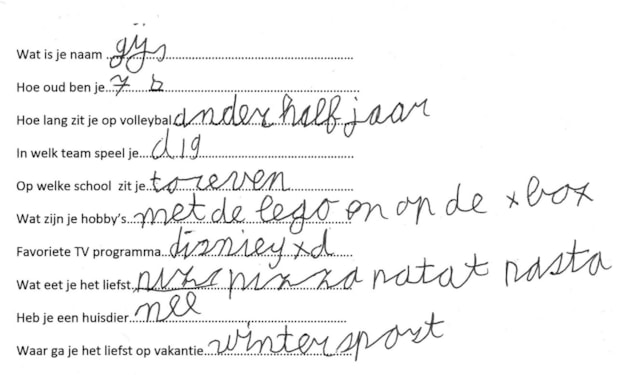 Wat is je naam gijs
Hoe oud ben je 7
Hoe lang zit je op volleybal anderhalf jaar
In welk team speel je d19
Op welke school zit je toreven
Wat zijn je hobby's met de lego en op de xbox
Favoriete TV programma disniey xd
Wat eet je het liefst pizza patat pasta
Heb je een huisdier nee
Waar ga je het liefst op vakantie wintersport